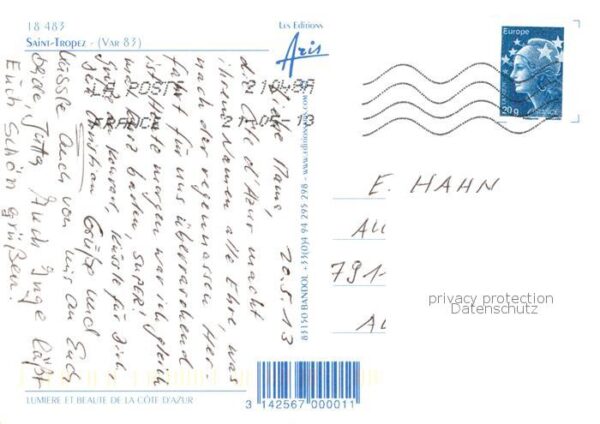 18 483
SAINT-TROPEZ - (VAR 83)
Les Editions
Aris
Europe
20g
FRANCE
LA POSTE 21042A
FRANCE 21-05-13
20.5.13
Mama,
d. Côte d'Azur macht
ihrem Namen alle Ehre, was
nach der regennassen Her-
fahrt für uns überraschend
ist. Heute morgen war ich gleich
baden, super!
Konrad, Küsse für Dich
Christian Grüße und
Küssle Auch von mir an Euch
beide Jutta Auch Inge läßt
Euch Schön grüßen.
E. HAHN
AU
791-
AU
83150 BANDOL +33(0)4 94 295 298 - www.editions
privacy protection
Datenschutz
LUMIERE ET BEAUTE DE LA CÔTE D'AZUR
3 142567 000011